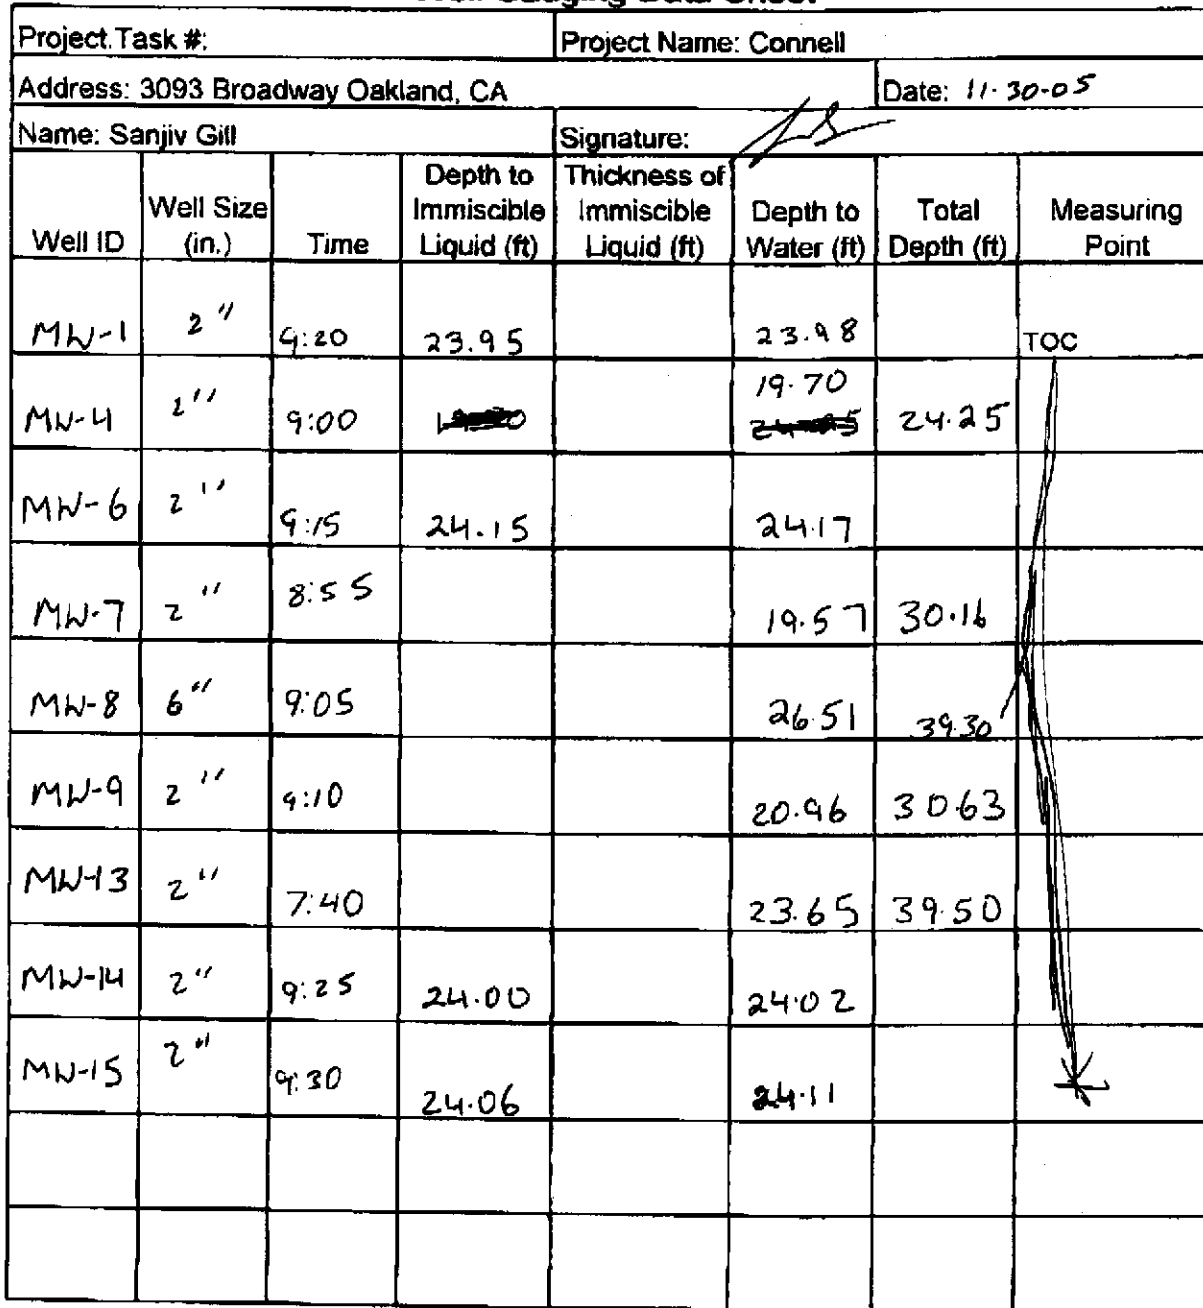 Project.Task #: Project Name: Connell
Address: 3093 Broadway Oakland, CA Date: 11-30-05
Name: Sanjiv Gill Signature:
Well ID Well Size (in.) Time Depth to Immiscible Liquid (ft) Thickness of Immiscible Liquid (ft) Depth to Water (ft) Total Depth (ft) Measuring Point
MW-1 2" 9:20 23.95 23.98 TOC
19.70
MW-4 2" 9:00 24.25
MW-6 2" 9:15 24.15 24.17
MW-7 2" 8:55 19.57 30.16
MW-8 6" 9:05 26.51 39.30
MW-9 2" 9:10 20.96 30.63
MW-13 2" 7:40 23.65 39.50
MW-14 2" 9:25 24.00 24.02
MW-15 2" 9:30 24.06 24.11